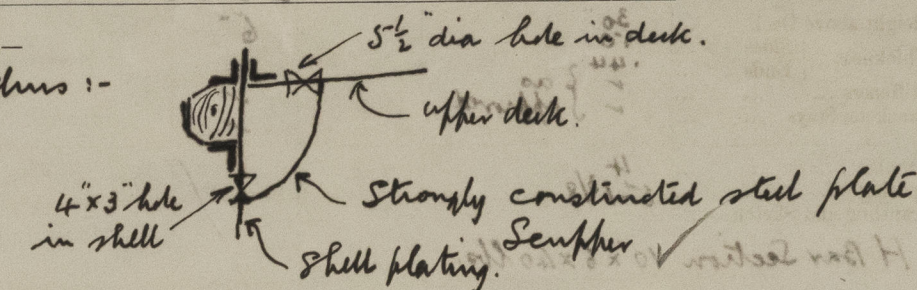 5½" dia hole in deck.
thus :-
upper deck.
4"x3" hole
in shell
Strongly constructed steel plate
Scupper ✓
Shell plating.